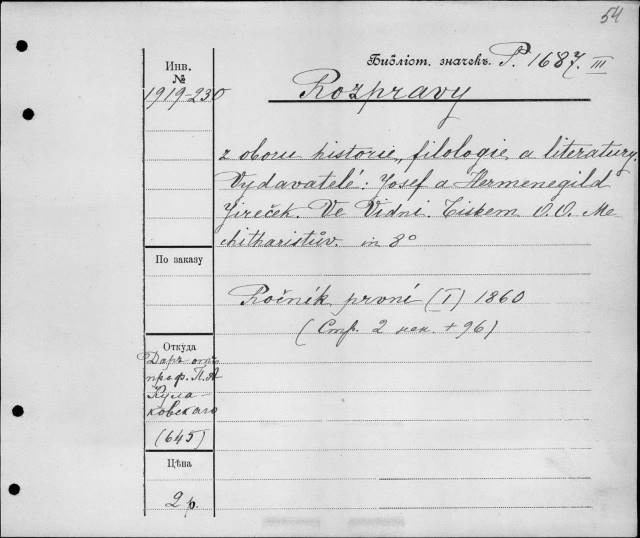 54
Инв.
№
1919-230
Библіот. значекъ. P. 1687. III
Rozpravy
z oboru historie, filologie a literatury.
Vydavatelé: Josef a Hermenegild
Jireček. Ve Vídni. Tiskem O.O. Me-
chitharistův. in 8°
По заказу
Ročník první (I) 1860
(Стр. 2 нен. + 96)
Откуда
Даръ отъ
проф. П. А
Кула-
ковскаго
(645)
Цѣна
2 р.